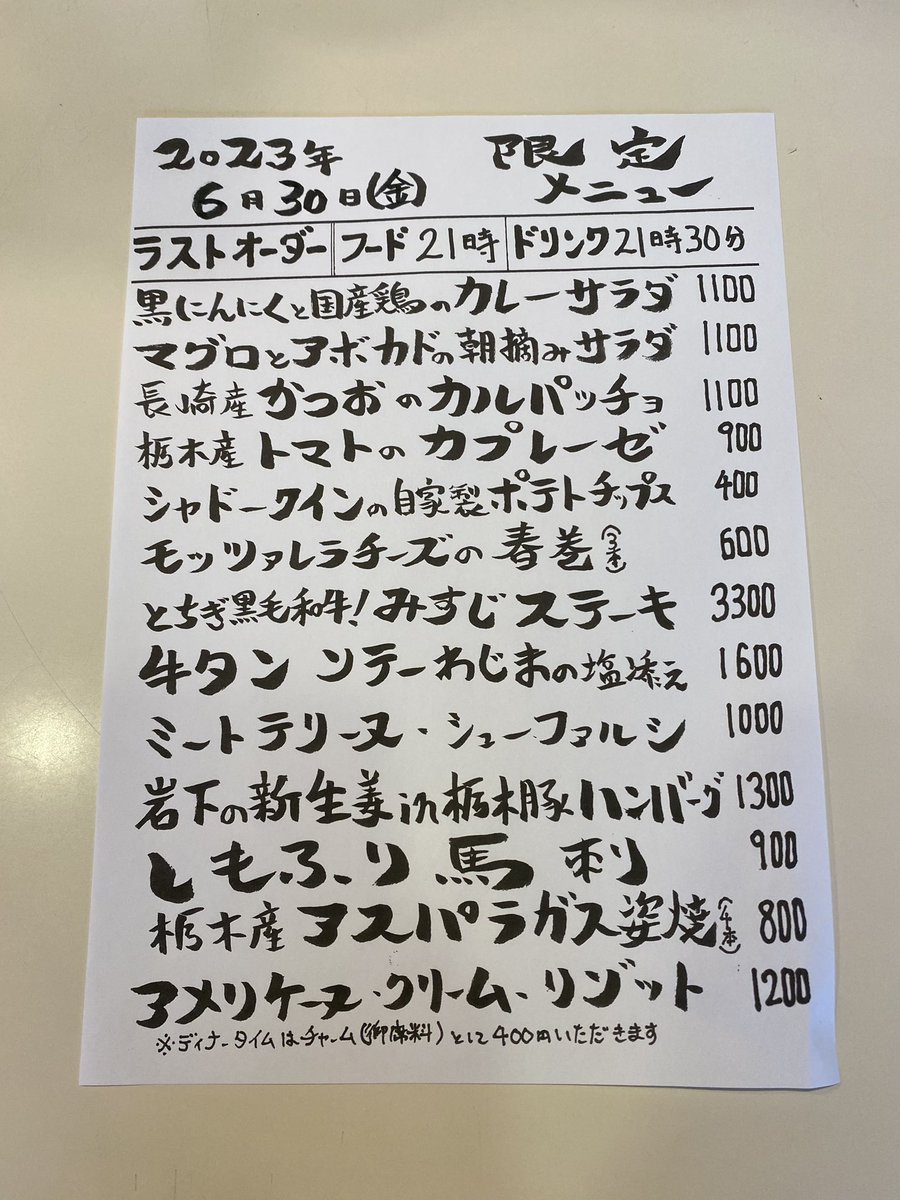 2023年 限定
6月30日(金) メニュー
ラストオーダー フード21時 ドリンク21時30分
黒にんにくと国産鶏のカレーサラダ 1100
マグロとアボカドの朝摘みサラダ 1100
長崎産かつおのカルパッチョ 1100
栃木産トマトのカプレーゼ 900
シャドークインの自家製ポテトチップス 400
モッツァレラチーズの春巻(3本) 600
とちぎ黒毛和牛!みすじステーキ 3300
牛タンソテーわじまの塩添え 1600
ミートテリーヌ・シュー・ファルシ 1000
岩下の新生姜in栃木豚ハンバーグ 1300
しもふり馬刺 900
栃木産アスパラガス姿焼(4本) 800
アメリケーヌ・クリーム・リゾット 1200
※ディナータイムはチャーム(御席料)として400円いただきます